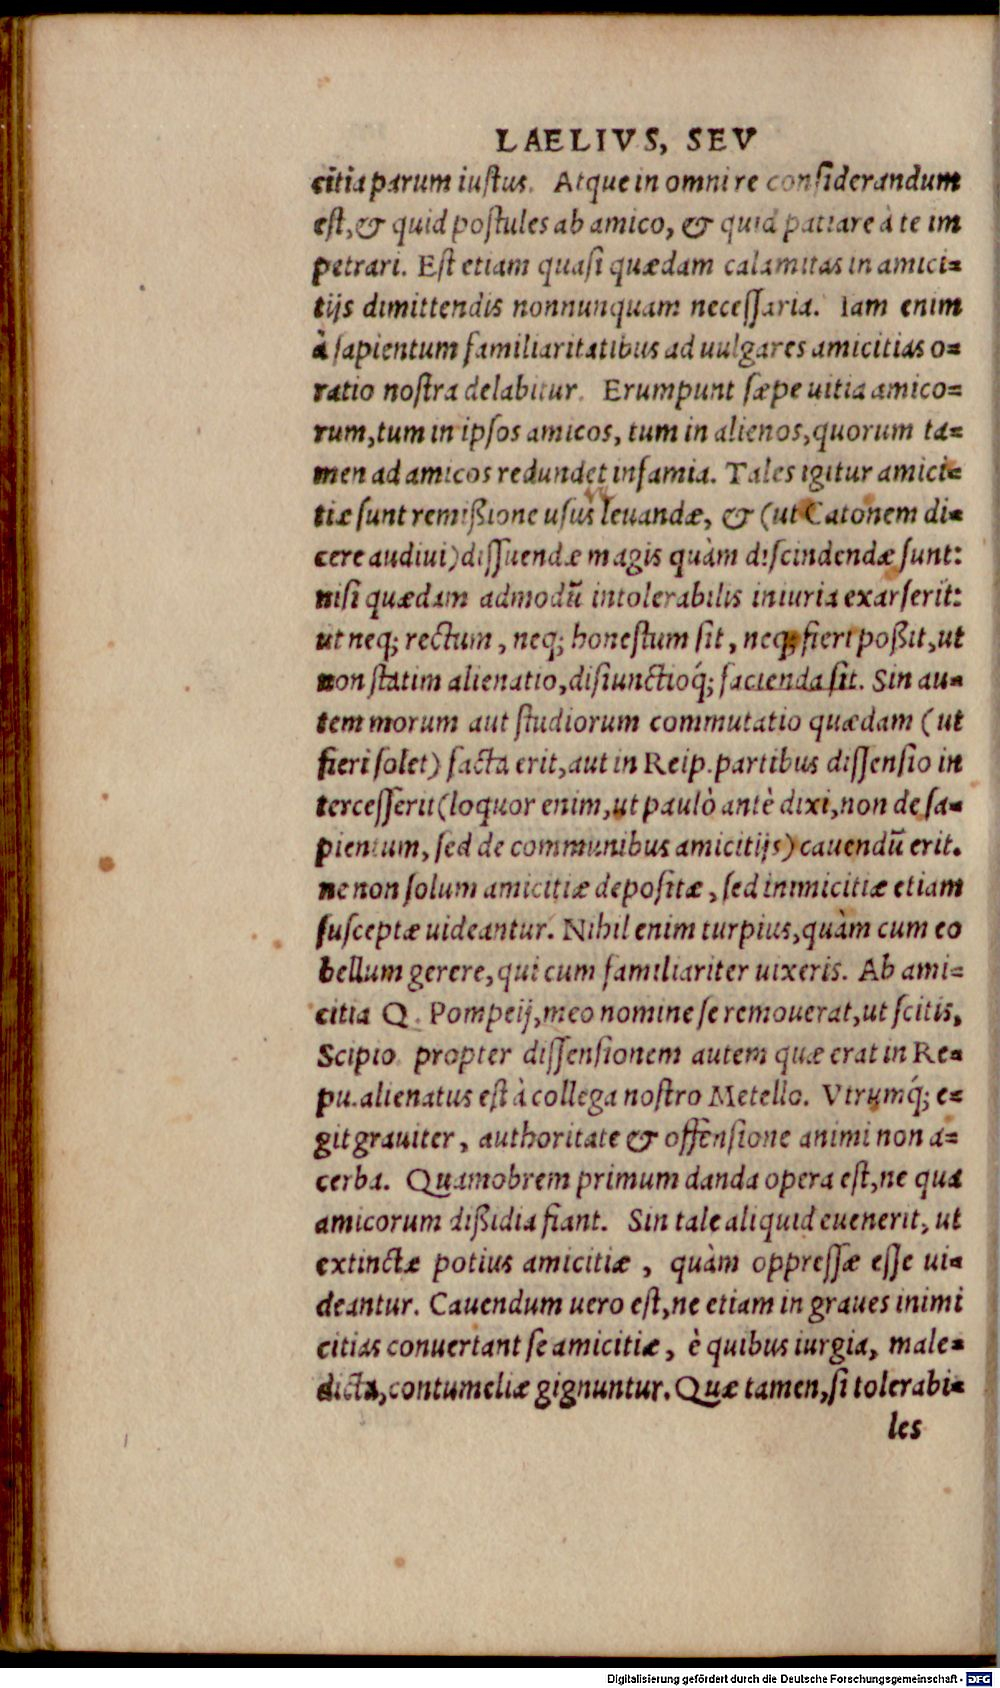 LAELIVS, SEV
citia parum iustus. Atque in omni re considerandum
est, & quid postules ab amico, & quid patiare à te im
petrari. Est etiam quasi quædam calamitas in amici=
tijs dimittendis nonnunquam necessaria. Iam enim
à sapientum familiaritatibus ad uulgares amicitias o=
ratio nostra delabitur. Erumpunt sæpe uitia amico=
rum, tum in ipsos amicos, tum in alienos, quorum ta=
men ad amicos redundet infamia. Tales igitur amici=
tiæ sunt remißione usus leuandæ, & (ut Catonem di=
cere audiui) dissuendæ magis quàm discindendæ sunt:
nisi quædam admodū intolerabilis iniuria exarserit:
ut neq; rectum, neq; honestum sit, neq; fieri poßit, ut
non statim alienatio, disiunctioq́; facienda sit. Sin au=
tem morum aut studiorum commutatio quædam (ut
fieri solet) facta erit, aut in Reip. partibus dissensio in
tercesserit (loquor enim, ut paulò antè dixi, non de sa=
pientum, sed de communibus amicitijs) cauendū erit.
ne non solum amicitiæ depositæ, sed inimicitiæ etiam
susceptæ uideantur. Nihil enim turpius, quàm cum eo
bellum gerere, qui cum familiariter uixeris. Ab ami=
citia Q. Pompeij, meo nomine se remouerat, ut scitis,
Scipio propter dissensionem autem quæ erat in Re=
pu. alienatus est à collega nostro Metello. Vtrumq́; e=
git grauiter, authoritate & offensione animi non a=
cerba. Quamobrem primum danda opera est, ne qua
amicorum dißidia fiant. Sin tale aliquid euenerit, ut
extinctæ potius amicitiæ, quàm oppressæ esse ui=
deantur. Cauendum uero est, ne etiam in graues inimi
citias conuertant se amicitiæ, è quibus iurgia, male=
dicta, contumeliæ gignuntur. Quæ tamen, si tolerabi=
les
Digitalisierung gefördert durch die Deutsche Forschungsgemeinschaft - DFG